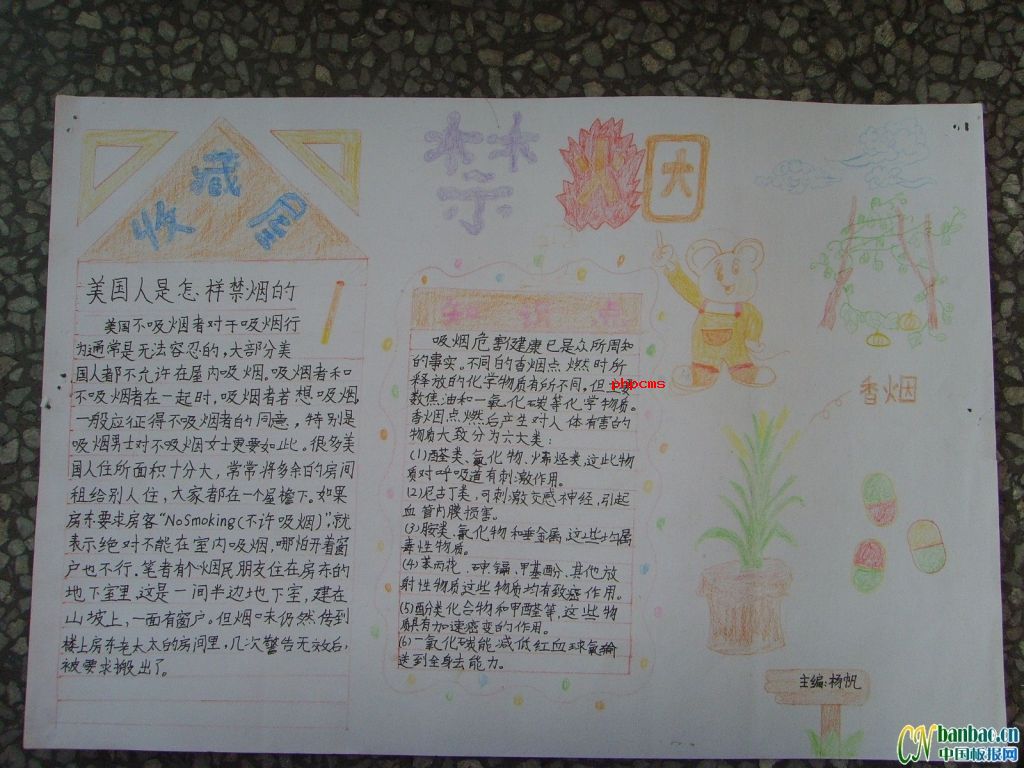 收藏阁
美国人是怎样禁烟的
美国不吸烟者对于吸烟行
为通常是无法容忍的,大部分美
国人都不允许在屋内吸烟。吸烟者和
不吸烟者在一起时,吸烟者若想吸烟,
一般应征得不吸烟者的同意,特别是
吸烟男士对不吸烟女士更要如此。很多美
国人住所面积十分大,常常将多余的房间
租给别人住,大家都在一个屋檐下。如果
房东要求房客“NoSmoking(不许吸烟)”,就
表示绝对不能在室内吸烟,哪怕开着窗
户也不行。笔者有个烟民朋友住在房东的
地下室里,这是一间半边地下室,建在
山坡上,一面有窗户。但烟味仍然传到
楼上房东老太太的房间里,几次警告无效后,
被要求搬出了。
禁烟
知识点
吸烟危害健康已是众所周知
的事实。不同的香烟点燃时所
释放的化学物质有所不同,但
数焦油和一氧化碳等化学物质。
香烟点燃后产生对人体有害的
物质大致分为六大类:
(1)醛类、氮化物、烯烃类,这些物
质对呼吸道有刺激作用。
(2)尼古丁类,可刺激交感神经,引起
血管内膜损害。
(3)胺类、氰化物和重金属,这些均属
毒性物质。
(4)苯丙芘、砷、镉、甲基酚、其他放
射性物质这些物质均有致癌作用。
(5)酚类化合物和甲醛等,这些物
质具有加速癌变的作用。
(6)一氧化碳能减低红血球氧输
送到全身去能力。
phpcms
香烟
主编:杨帆
CN banbao.cn
中国板报网